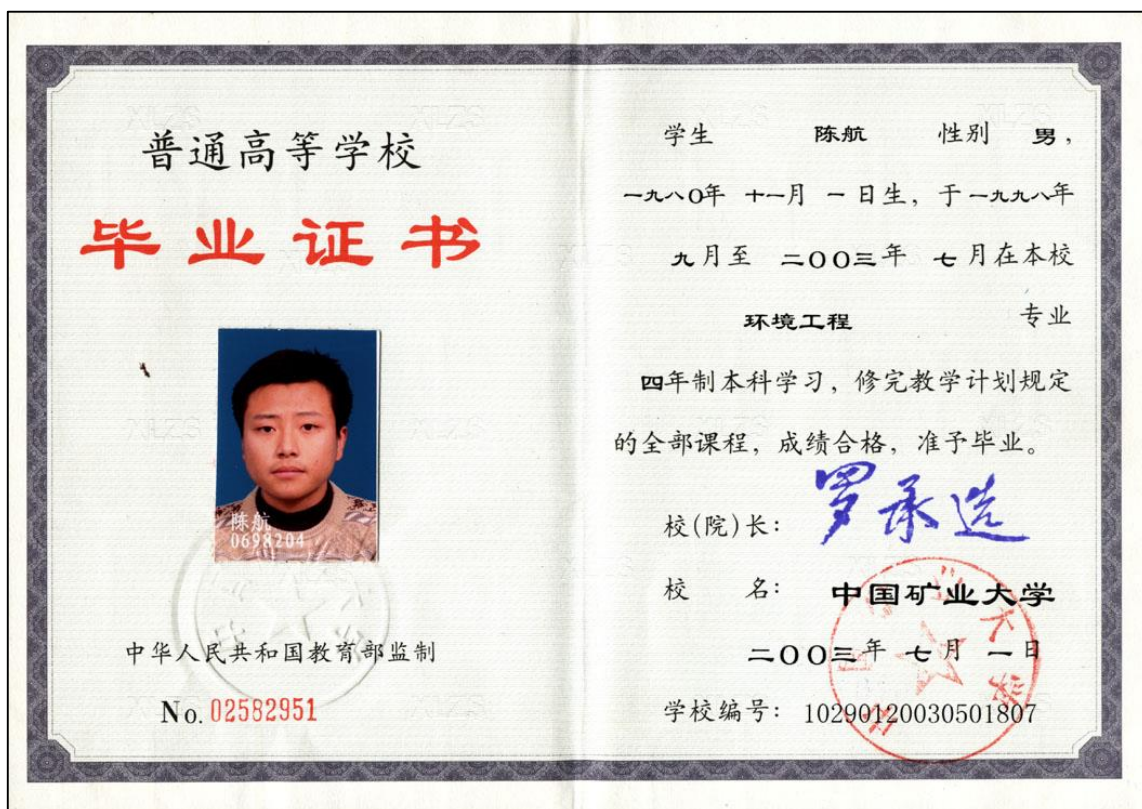 普通高等学校
毕业证书
陈航
0698204
中华人民共和国教育部监制
No. 02582951
学生 陈航 性别 男,
一九八〇年 十一月 一日生, 于一九九八年
九月至 二〇〇三年 七月在本校
环境工程 专业
四年制本科学习, 修完教学计划规定
的全部课程, 成绩合格, 准予毕业。
校(院)长: 罗承选
校 名: 中国矿业大学
二〇〇三年 七月 一日
学校编号: 10290120030501807